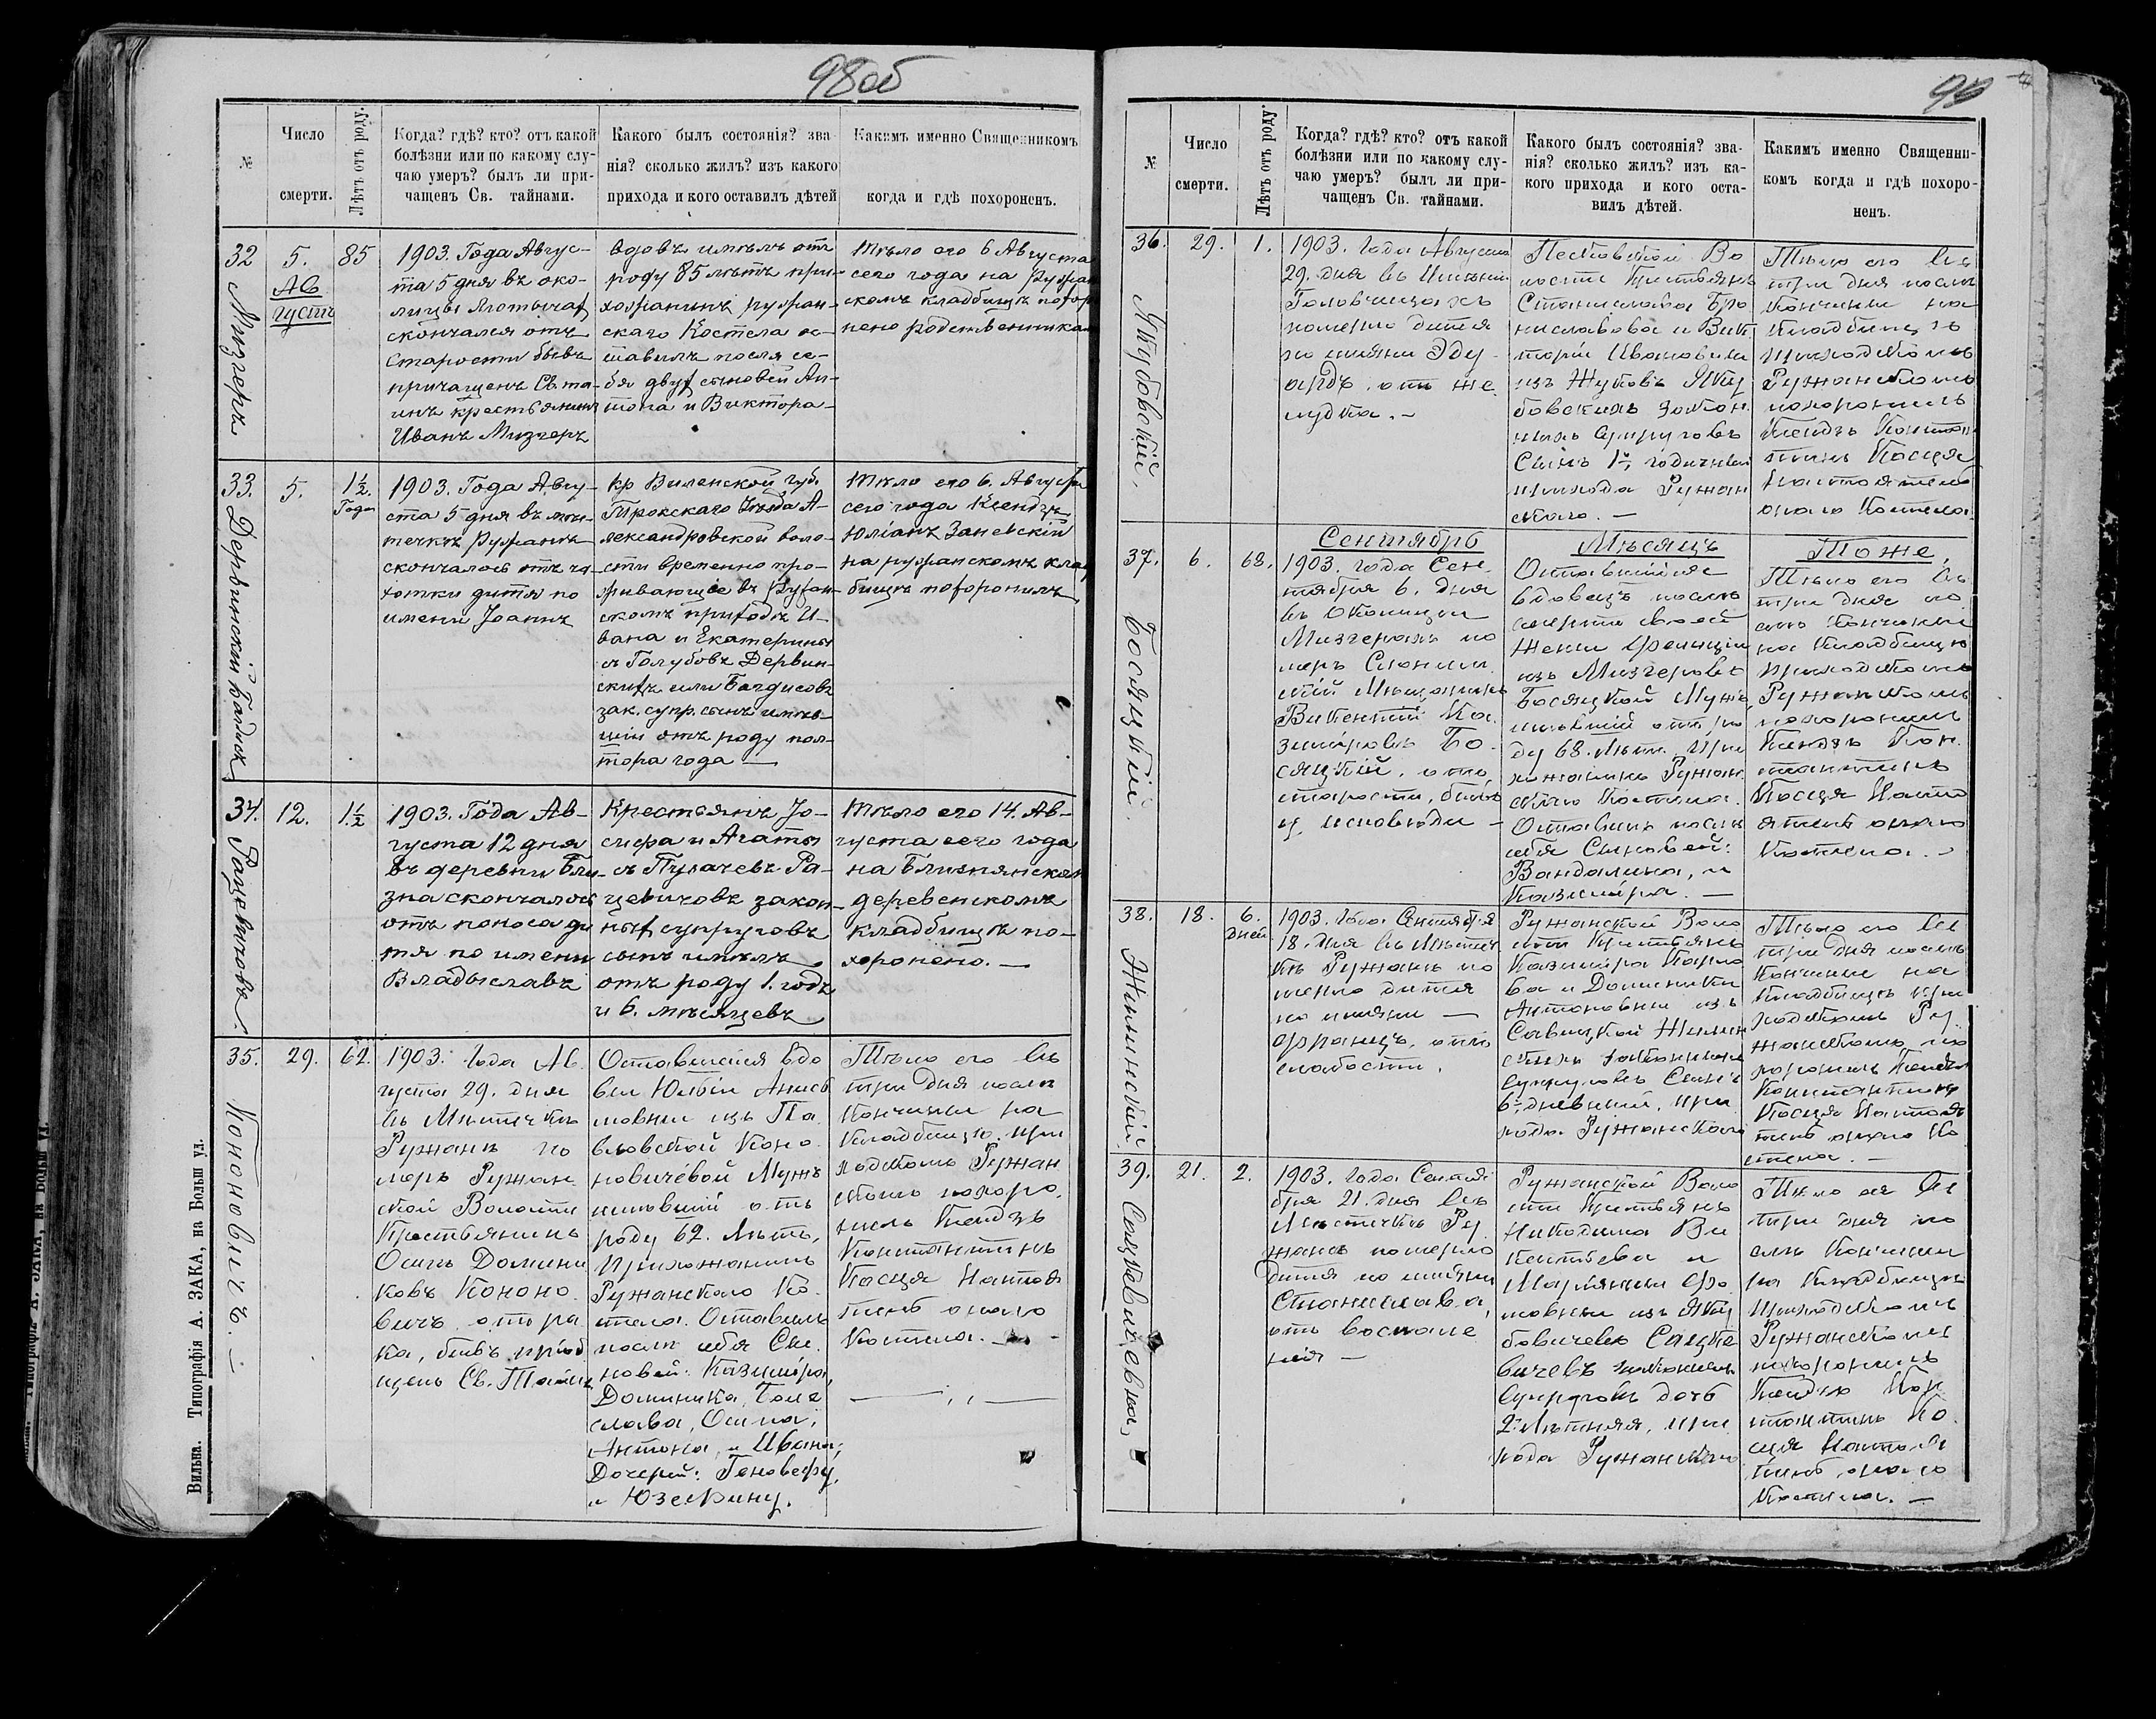 98об
№
Число
смерти.
Лѣтъ отъ роду.
Когда? гдѣ? кто? отъ какой
болѣзни или по какому слу-
чаю умеръ? былъ ли при-
чащенъ Св. тайнами.
Какого былъ состоянія? зва-
нія? сколько жилъ? изъ какого
прихода и кого оставилъ дѣтей
Какимъ именно Священникомъ
когда и гдѣ похороненъ.
32
Мизгеръ
5.
Ав
густъ
85
1903. Года Авгус-
та 5 дня въ око-
лицы
скончался отъ
старости бывъ
причащенъ Св. та-
инъ крестьянинъ
Иванъ Мизгеръ
вдовъ имѣлъ отъ
роду 85 лѣтъ при-
хожанинъ ружан-
скаго Костела ос-
тавилъ после се-
бя двух сыновей Ан-
тона и Виктора-
Тѣло его 6 Августа
сего года на Ружан
скомъ кладбищѣ похор
нено родственникам
33.
5.
1½
Года
1903. Года Авгу-
ста 5 дня въ мѣс-
течкѣ Ружанѣ
скончалось отъ ча-
хотки дитя по
имени Іоаннъ
Кр Виленской губ.
Трокскаго Уѣзда А-
лександровской воло-
сти временно про-
живающие въ Ружан-
скомъ приходѣ И-
вана и Екатерины
съ Голубовъ Дервин-
скихъ или Багдисовъ
зак. супр. сынъ имѣв-
шій отъ роду пол-
тора года —
Тѣло его 6. Августа
сего года Ксендзъ
Юліанъ Заневскій
на ружанскомъ клад
бищѣ похоронилъ
34.
Рацевичовъ.
12.
1½
1903. Года Ав-
густа 12 дня
въ деревни Бли-
зна скончалось
отъ поноса ди
тя по имени
Владыславъ
Крестьянъ Іо-
сифа и Агаты
съ Пугачевъ Ра-
цевичовъ закон-
ных супруговъ
сынъ имѣлъ
отъ роду 1. годъ
и 6. мѣсяцевъ
Тѣло его 14. Ав-
густа сего года
на Близнянском
деревенскомъ
кладбищѣ по-
хоронено. —
35.
Кононовичъ. —
29.
62.
1903. Года Ав
густа 29. дня
въ Мѣстечкѣ
Ружанѣ по
меръ Ружан
ской Волости
Крестьянинъ
Осипъ Домини
ковъ Кононо
вичъ отъ ра
ка, бывъ пріоб
щенъ Св. Тайнъ
Оставшейся вдо
вы Юлііи
из Па
вловской Коно
новичевой Мужъ
имѣвшій отъ
роду 62. лѣтъ,
Прихожанинъ
Ружанскаго Ко
стела. Оставилъ
послѣ себя Сы
новей: Казиміра,
Доминика, Боле
слава, Осипа,
Антона, и Ивана;
Дочерей: Геновефу,
и Юзефину.
Тѣло его въ
три дня послѣ
Кончины на
Кладбищѣ при
ходскомъ Ружан
скомъ похоро
нилъ Ксендзъ
Константинъ
Косця Настоя
тель онаго
Костела. —
Вильна. Типографія А. ЗАКА, на Больш ул.
99
№
Число
смерти.
Лѣтъ отъ роду.
Когда? гдѣ? кто? отъ какой
болѣзни или по какому слу-
чаю умеръ? былъ ли при-
чащенъ Св. тайнами.
Какого былъ состоянія? зва-
нія? сколько жилъ? изъ ка-
кого прихода и кого оста-
вилъ дѣтей.
Какимъ именно Священни-
комъ когда и гдѣ похоро-
ненъ.
36.
Якубовскій.
29.
1.
1903. Года Августа
29. дня въ Имѣніи
Головчицахъ
померло дитя
по имяни Эду-
ардъ, отъ же
лудка. —
Песковской Во
лости Крестьянъ
Станислава Бро
ниславова и Вик
торіи Ивановны
изъ Жуковъ Яку
бовскихъ закон
ныхъ супруговъ
Сынъ 1-годичный
прихода Ружан
скаго. —
Тѣло его въ
три дня послѣ
Кончины на
Кладбищѣ
приходскомъ
Ружанскомъ
похоронилъ
Ксендзъ Констан
тинъ Косця
Настоятель
онаго Костела.
Сентябрь
Мѣсяцъ
Тоже.
37.
Босяцкій.
6.
68.
1903. года Сен
тября 6. дня
въ Околицы
Мизгерахъ по
меръ Слоним
скій Мѣщанинъ
Викентій Ка
зиміровъ Бо
сяцкій, отъ
старости, бывъ
у исповѣди —
Оставшійся
вдовецъ послѣ
смерти своей
Жены
изъ Мизгеровъ
Босяцкой Мужъ
имѣвшій отъ ро
ду 68. лѣтъ, при
хожанинъ Ружан
скаго Костела.
Оставилъ послѣ
себя Сыновей:
Вандалина, и
Казиміра. —
Тѣло его въ
три дня по
слѣ Кончины
на Кладбищѣ
приходскомъ
Ружанскомъ
похоронилъ
Ксендзъ Кон
стантинъ
Косця Насто
ятель онаго
Костела. —
38.
Жилинскій.
18.
6.
дней
1903. года Сентября
18. дня въ Мѣстеч
кѣ Ружанѣ по
мерло дитя
по имяни —
Францъ, отъ
слабости.
Ружанской Воло
сти Крестьянъ
Казиміра Карло
ва и Доминики
Антоновны изъ
Савицкой Жилин
скихъ законныхъ
Супруговъ Сынъ
6-дневный, при
хода Ружанскаго
Тѣло его въ
три дня послѣ
Кончины на
Кладбищѣ при
ходскомъ Ру
жанскомъ по
хоронилъ Ксендзъ
Константинъ
Косця Настоя
тель онаго Ко
стела. —
39.
21.
2.
1903. года Сентя
бря 21. дня въ
Мѣстечкѣ Ру
жанѣ померло
Дитя по имяни
Станислава,
отъ воспале
нія —
Ружанской Воло
сти Крестьянъ
Никодима Ви
кентьева и
Марьянны Фо
мовны изъ Яку
бовичевъ Сацке
вичевъ законныхъ
Супруговъ дочь
2-Лѣтняя, при
хода Ружанскаго
Тѣло ея въ
три дня по
слѣ Кончины
на Кладбищѣ
приходскомъ
Ружанскомъ
похоронилъ
Ксендзъ Кон
стантинъ Ко
сця Настоя
тель онаго
Костела. —